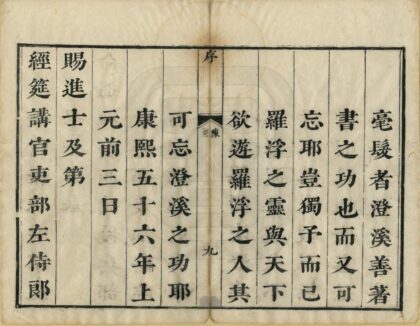 毫髮者澄溪善著
書之功也而又可
忘耶豈獨予而已
羅浮之靈與天下
欲遊羅浮之人其
序
九
可忘澄溪之功耶
康熙五十六年上
元前三日
賜進士及第
經筵講官吏部左侍郎